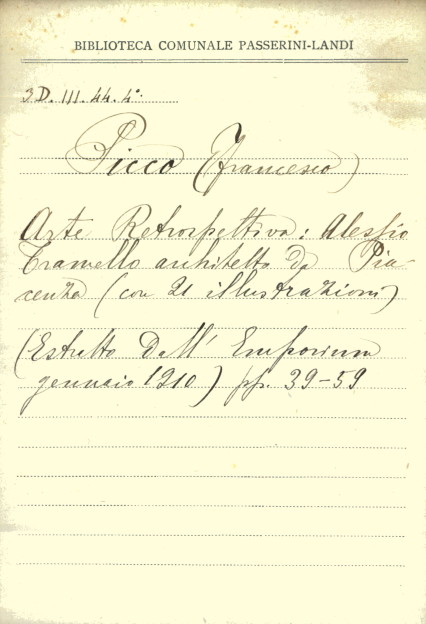 BIBLIOTECA COMUNALE PASSERINI-LANDI
3D. III. 44. 4°.
Picco (Francesco)
Arte Retrospettiva: Alessio
Tramello architetto da Pia-
cenza (con 21 illustrazioni)
(Estratto dall' Emporium
gennaio 1910) pp. 39-59